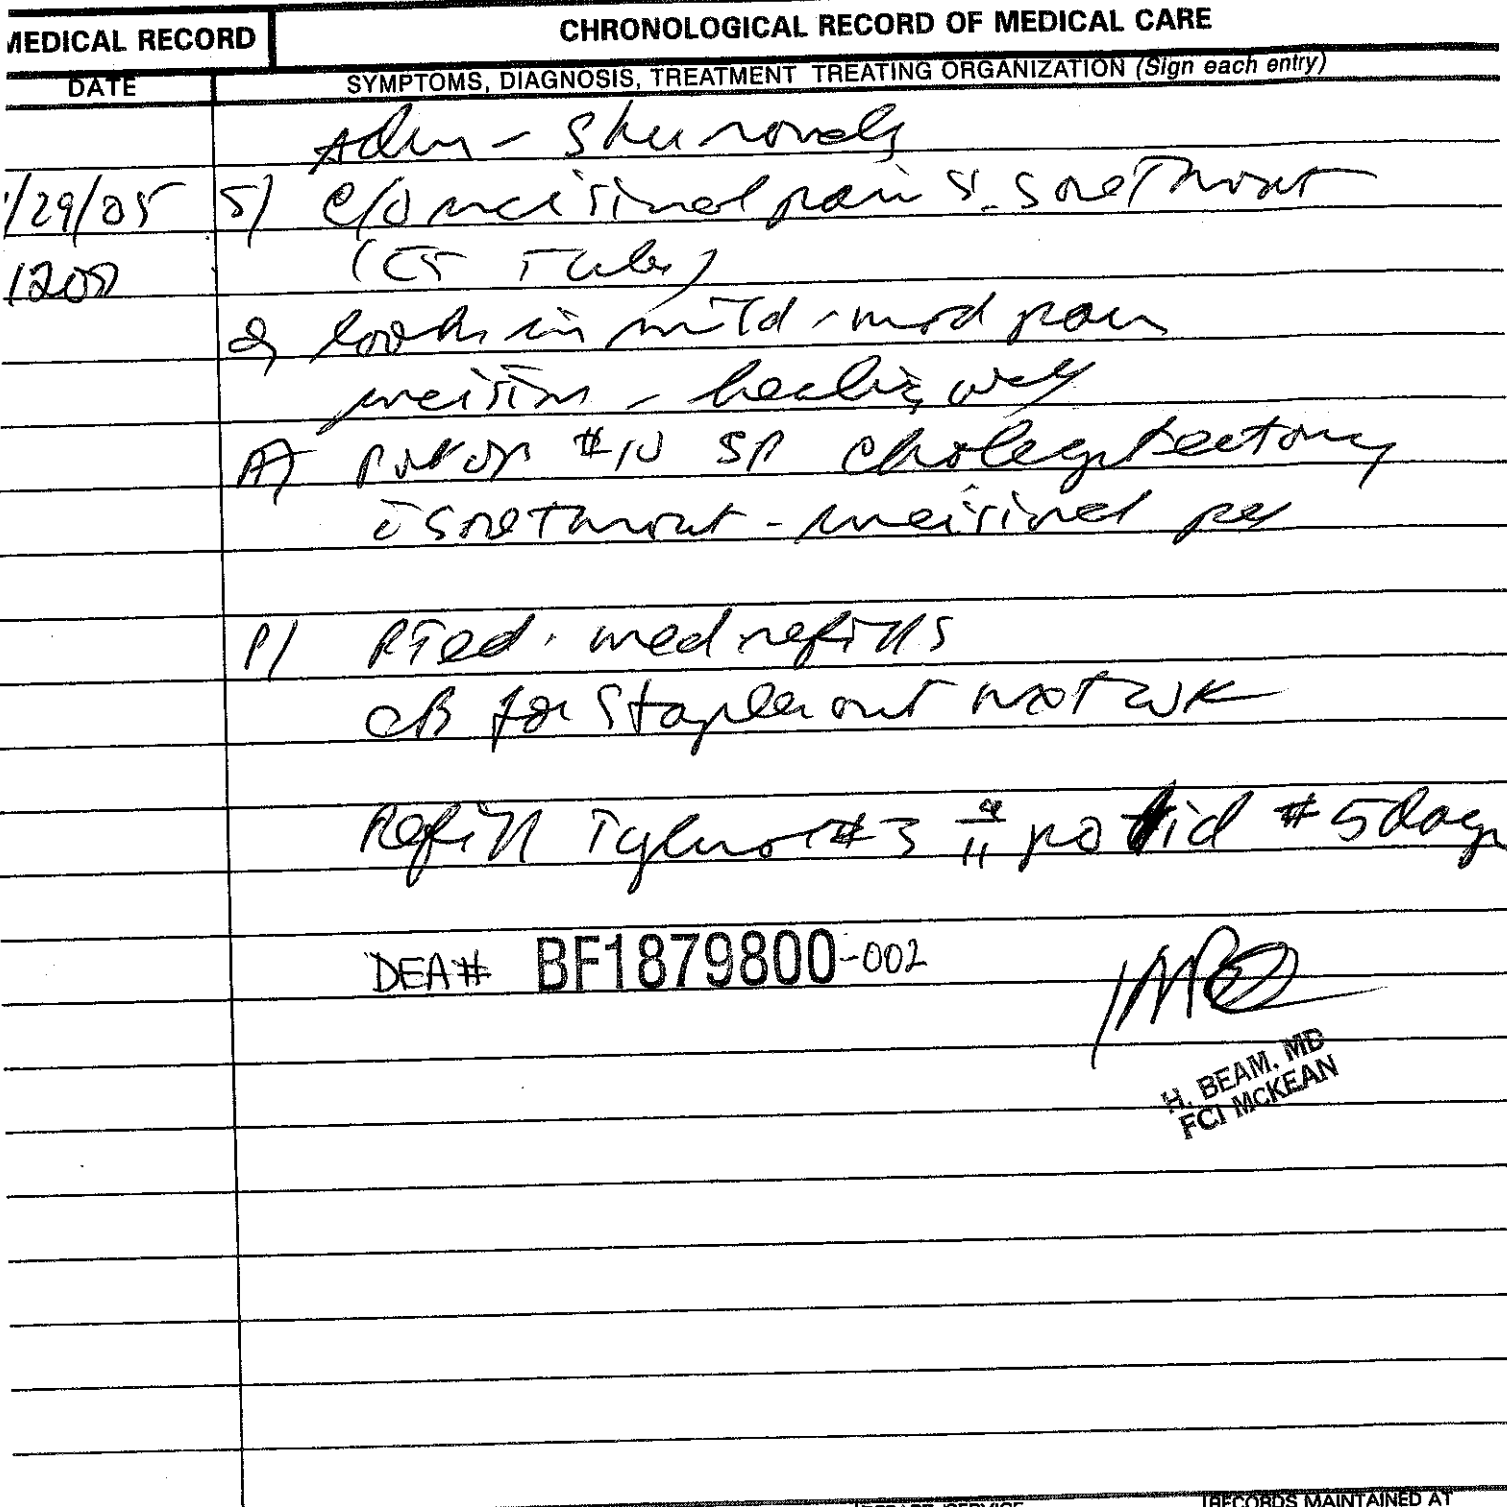 MEDICAL RECORD
CHRONOLOGICAL RECORD OF MEDICAL CARE
DATE
SYMPTOMS, DIAGNOSIS, TREATMENT TREATING ORGANIZATION (Sign each entry)
Adm -
/29/05 S) c/o incisional pain & sorethroat
1200
looks in mild-mod pain
incision - healing well
A) Post op #10 SP cholecystectomy
c̄ sorethroat - incisional
P/ PTed. med refills
CB for staples out next wk
Refill Tylenol #3 ii po #5days
DEA# BF1879800-002
H. BEAM, MD
FCI MCKEAN
RECORDS MAINTAINED AT